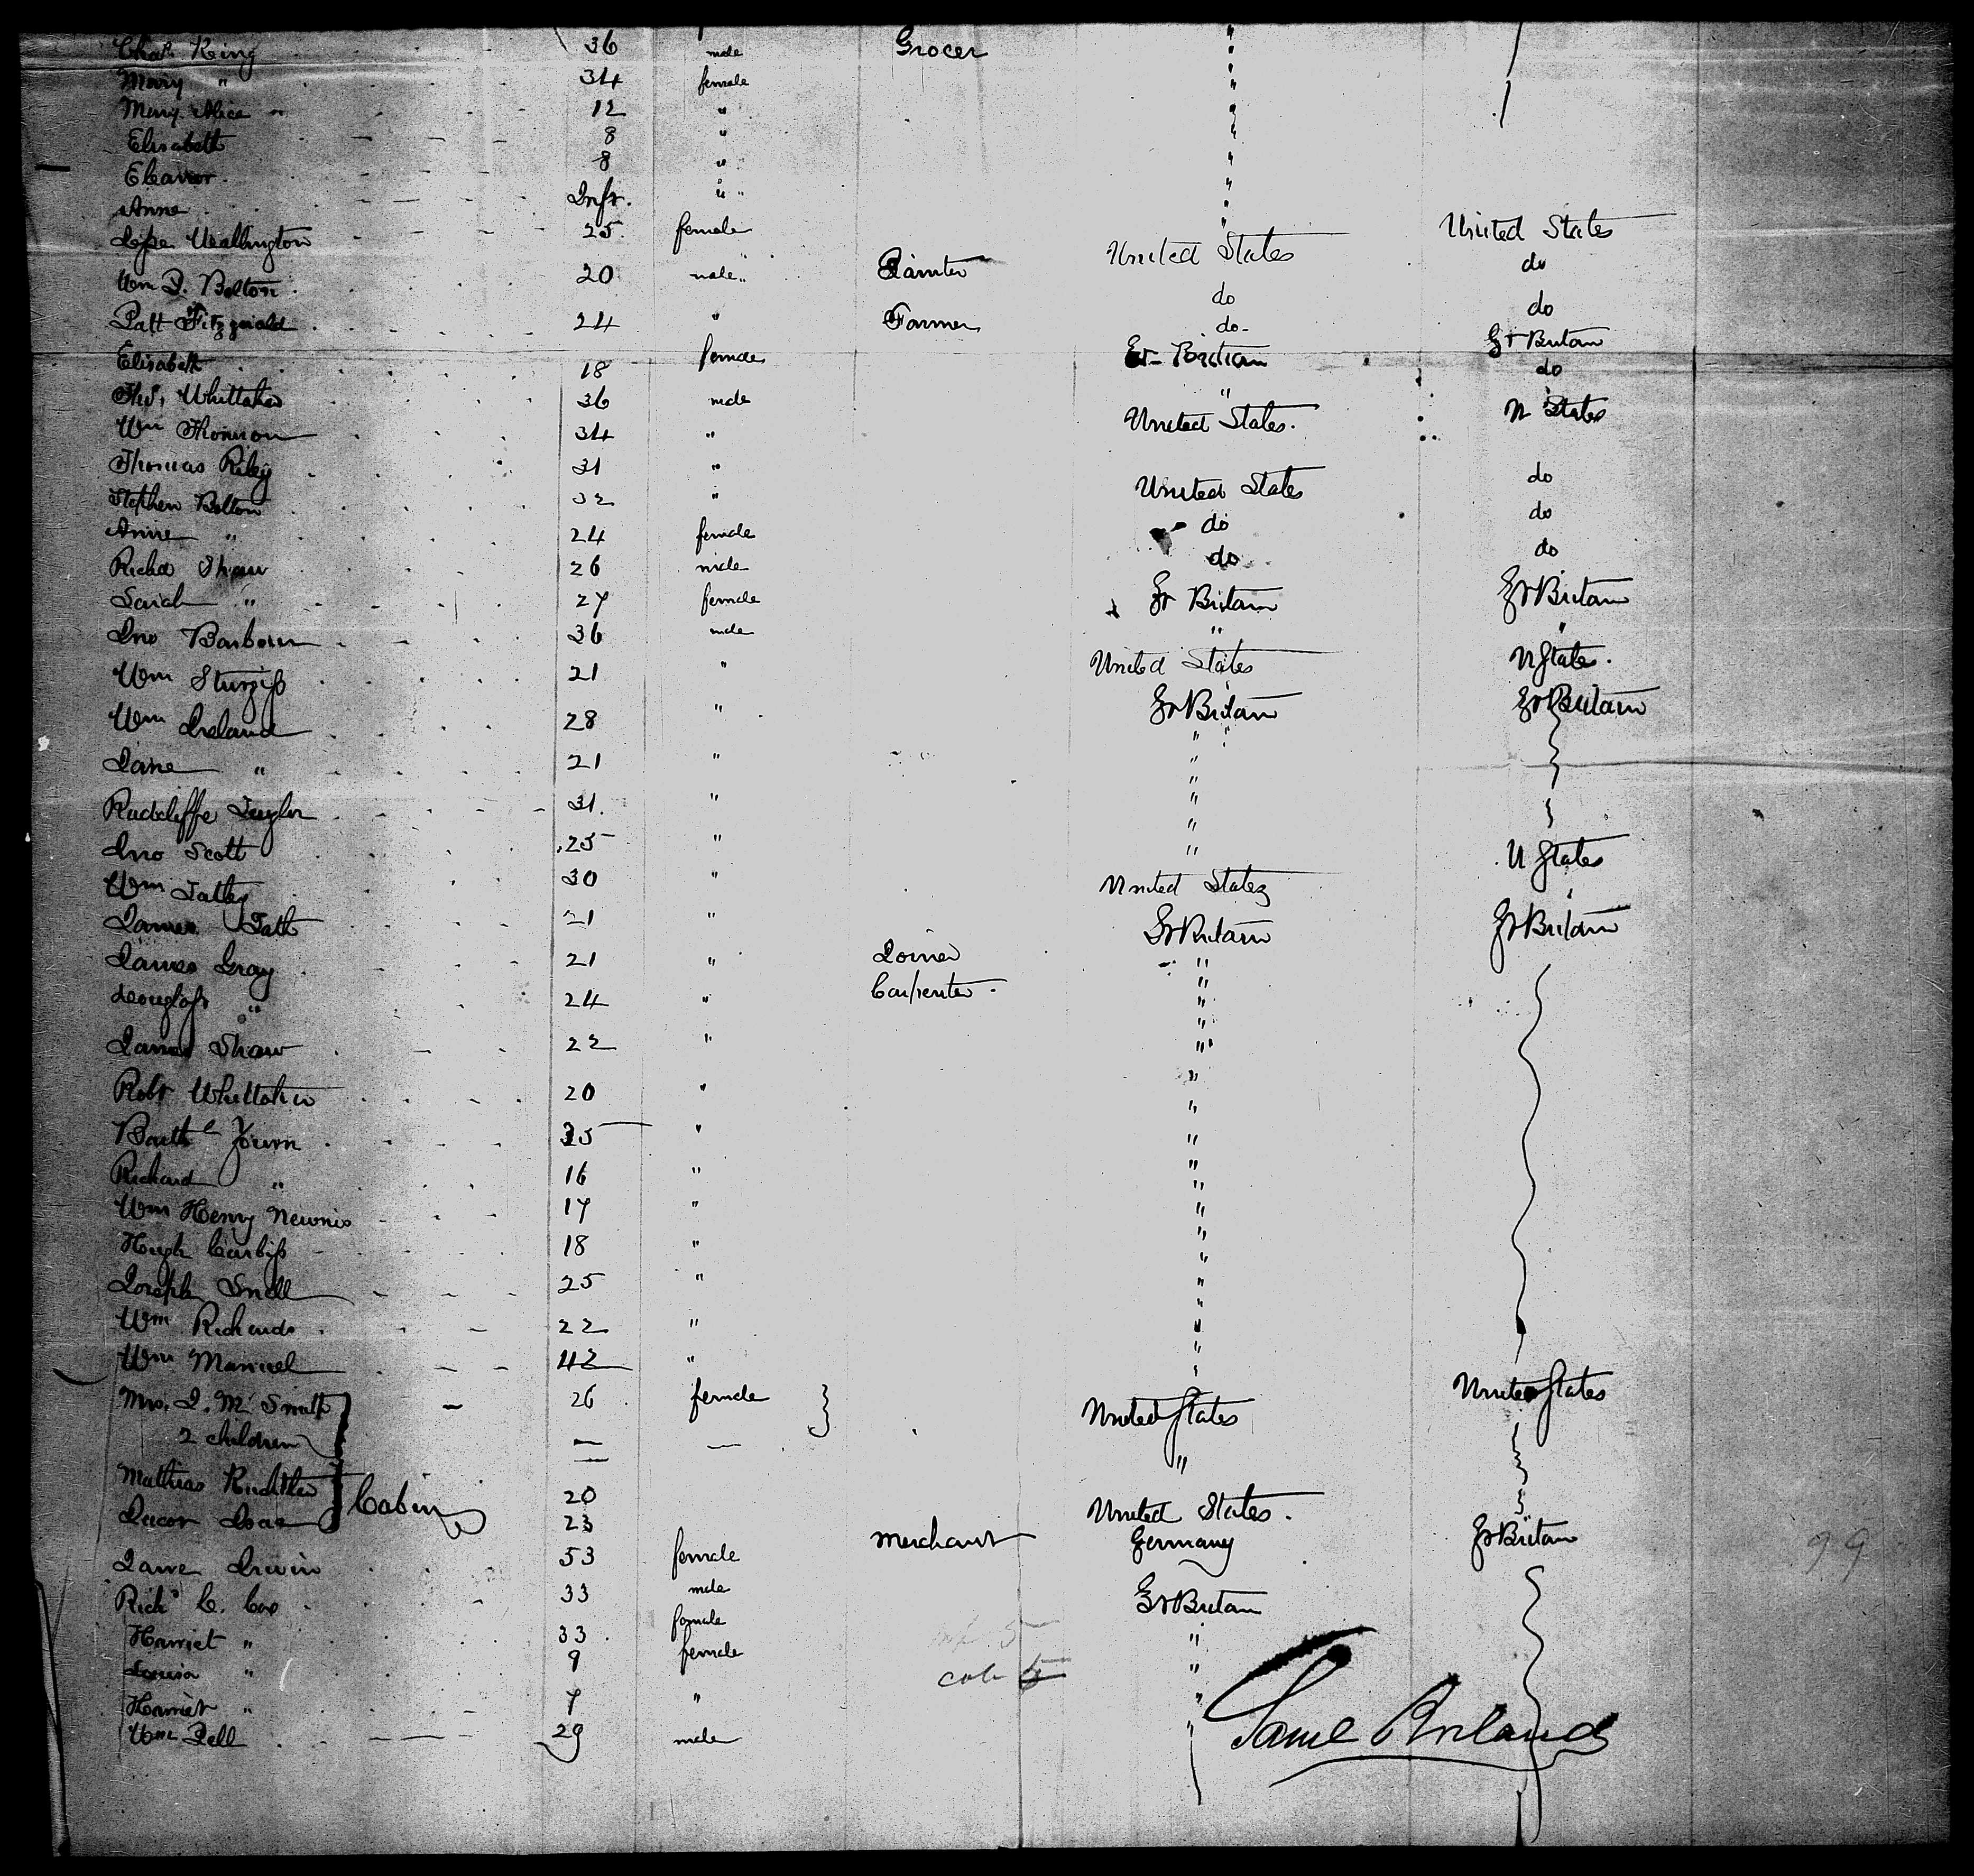 Chas. King 36 male Grocer "
Mary " 34 female "
Mary Alice " 12 " "
Elisabeth 8 " "
Eleanor 8 " "
Anne Inft. " "
Wallington 25 female United States United States
Wm D. Bolton 20 male " Painter do do
Patt Fitzgerald 24 " Farmer do do
Elisabeth 18 female Gr Britain Gr Britain
Thos. Whittaker 36 male " do
Wm Thomson 34 " United States. U States
Thomas Riley 31 " United States do
Stephen Bolton 32 " do do
Anne " 24 female do do
Richd Shaw 26 male Gr Britain Gr Britain
Sarah " 27 female " "
Jno Barbour 36 male United States U States.
Wm Sturgiss 21 " Gr Britain Gr Britain
Wm Ireland 28 " "
Jane " 21 " "
Radcliffe Taylor 31. " "
Jno Scott 25 " " U States
Wm Tatley 30 " United States
James Tatt 21 " Gr Britain Gr Britain
James Gray 21 " Joiner "
Douglass " 24 " Carpenter. "
James Shaw 22 " "
Robt Whittaker 20 " "
Barth 35 " "
Richard " 16 " "
Wm Henry 17 " "
Hugh 18 " "
Joseph Snell 25 " "
Wm Richards 22 " "
Wm Manuel 42 " "
Mrs. J. M. Smith 26 female United States United States
2 children — — "
Mathias 20 United States.
Cabin
23 Merchant Germany Gr Britain
Jane Irwin 53 female
Richd C. Cox 33 male Gr Britain
Harriet " 33 female "
Louisa " 9 female "
Harriet " 7 " "
Wm Bell 29 male
inf 5
cab 5
99
Saml